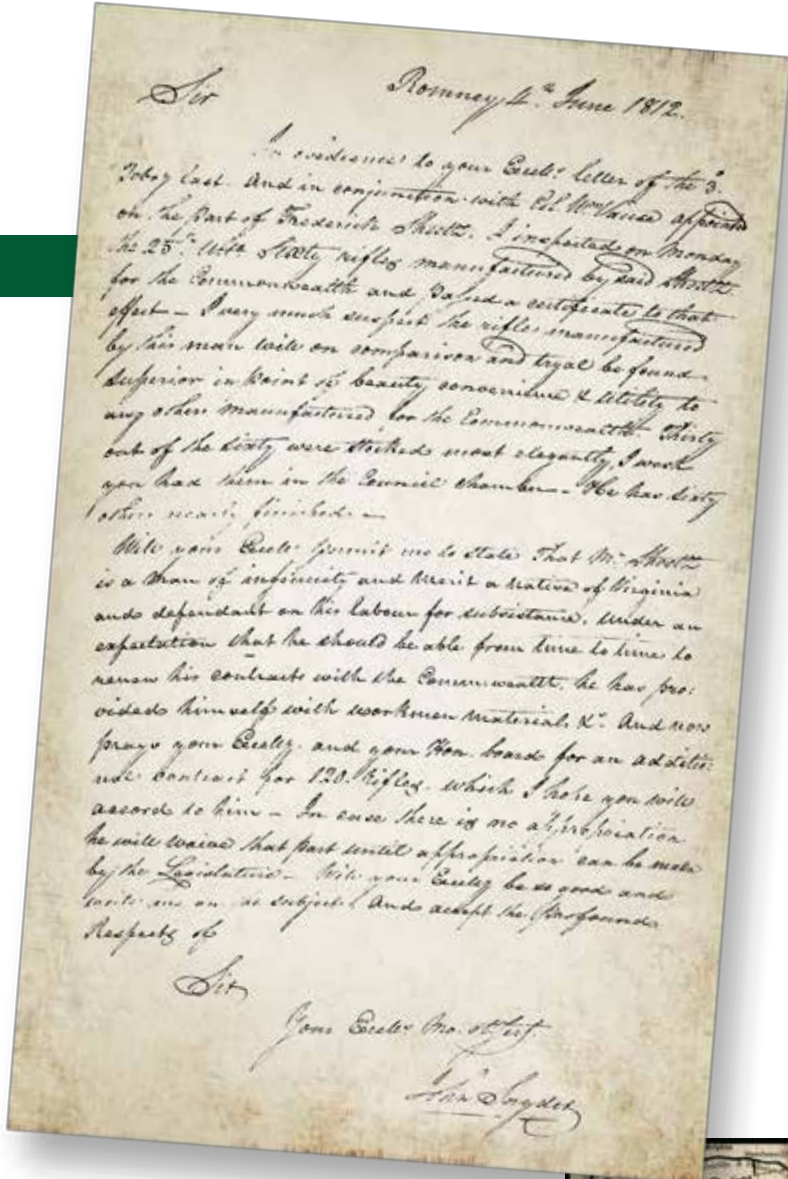 Sir Romney 4th June 1812.
In ovedience to your Excelcy letter of the 3.
Febry last. And in conjunction with Col Wm Vause appointed
on the Part of Frederick Sheetz. I inspected on Monday
the 25th Ulto Sixty rifles manufactured by said Sheetz
for the Commonwealth and a certificate to that
effect — I very much suspect the rifles manufactured
by this man will on comparison and tryal be found
superior in Point of beauty convenience & utility to
any others manufactured for the Commonwealth. Thirty
out of the sixty were stocked most elegantly, I wish
you had them in the Council Chamber — He has sixty
others nearly finished. —
Will your Excelcy permit me to state That Mr Sheetz
is a Man of ingenuity and Merit a Native of Virginia
and dependant on his labour for subsistance. Under an
expectation that he should be able from time to time to
renew his contracts with the Commonwealth. he has pro:
vided himself with workmen materials &c. And now
prays your Excelcy. and your Hon. board for an additio:
nal contract for 120. Rifles. which I hope you will
accord to him — In case there is no appropriation
he will waive that part until appropriation can be made
by the Legislature — Will your Excelcy be so good and
write me on subject. And accept the Profound
Respects of
Sir
Your Excelcy Mo. ob.
John Snyder